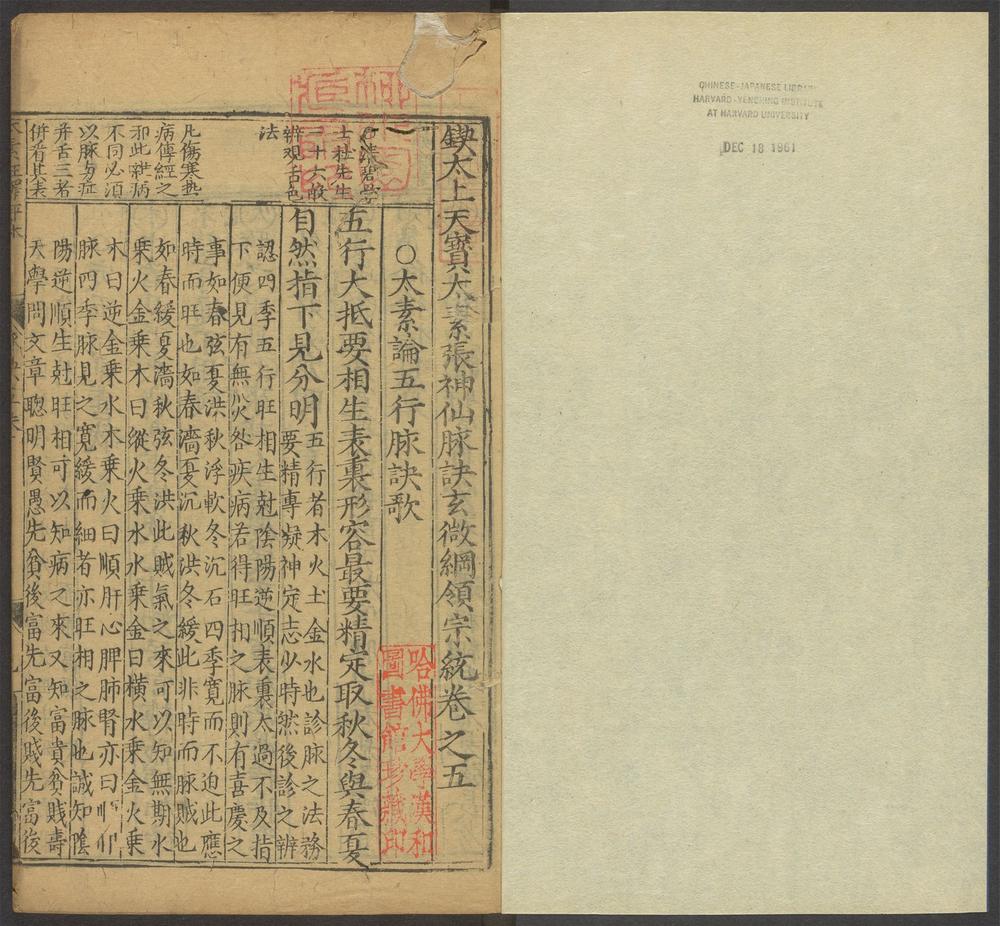 CHINESE-JAPANESE LIBRARY
HARVARD-YENCHING INSTITUTE
AT HARVARD UNIVERSITY
DEC 18 1961
鍥太上天寶太素張神仙脉訣玄微綱領宗統卷之五
○太素論五行脉訣歌
哈佛大學漢和
圖書館珍藏印
五行大抵要相生表裏形容最要精定取秋冬與春夏
自然指下見分明
五行者木火土金水也診脉之法務
要精專凝神定志少時然後診之辨
認四季五行旺相生尅陰陽逆順表裏太過不及指
下便見有無災咎疾病若得旺相之脉則有喜慶之
事如春弦夏洪秋浮軟冬沉石四季寬而不迫此應
時而旺也如春濇夏沉秋洪冬緩此非時而脉賊也
如春緩夏濇秋弦冬洪此賊氣之來可以知無期水
乘火金乘木曰縱火乘水水乘金曰橫水乘金火乘
木曰逆金乘水木乘火曰順肝心脾肺腎亦曰
脉四季脉見之寬緩而細者亦旺相之脉也誠知陰
陽逆順生尅旺相可以知病之來又知富貴貧賤壽
夭學問文章聰明賢愚先貧後富先富後賤先富後
法碧雲
士杜先生
三十六般
辨观舌色
法
凡傷寒熱
病傳經之
邪此雜病
不同必須
以脉与症
并舌三者
併看其表